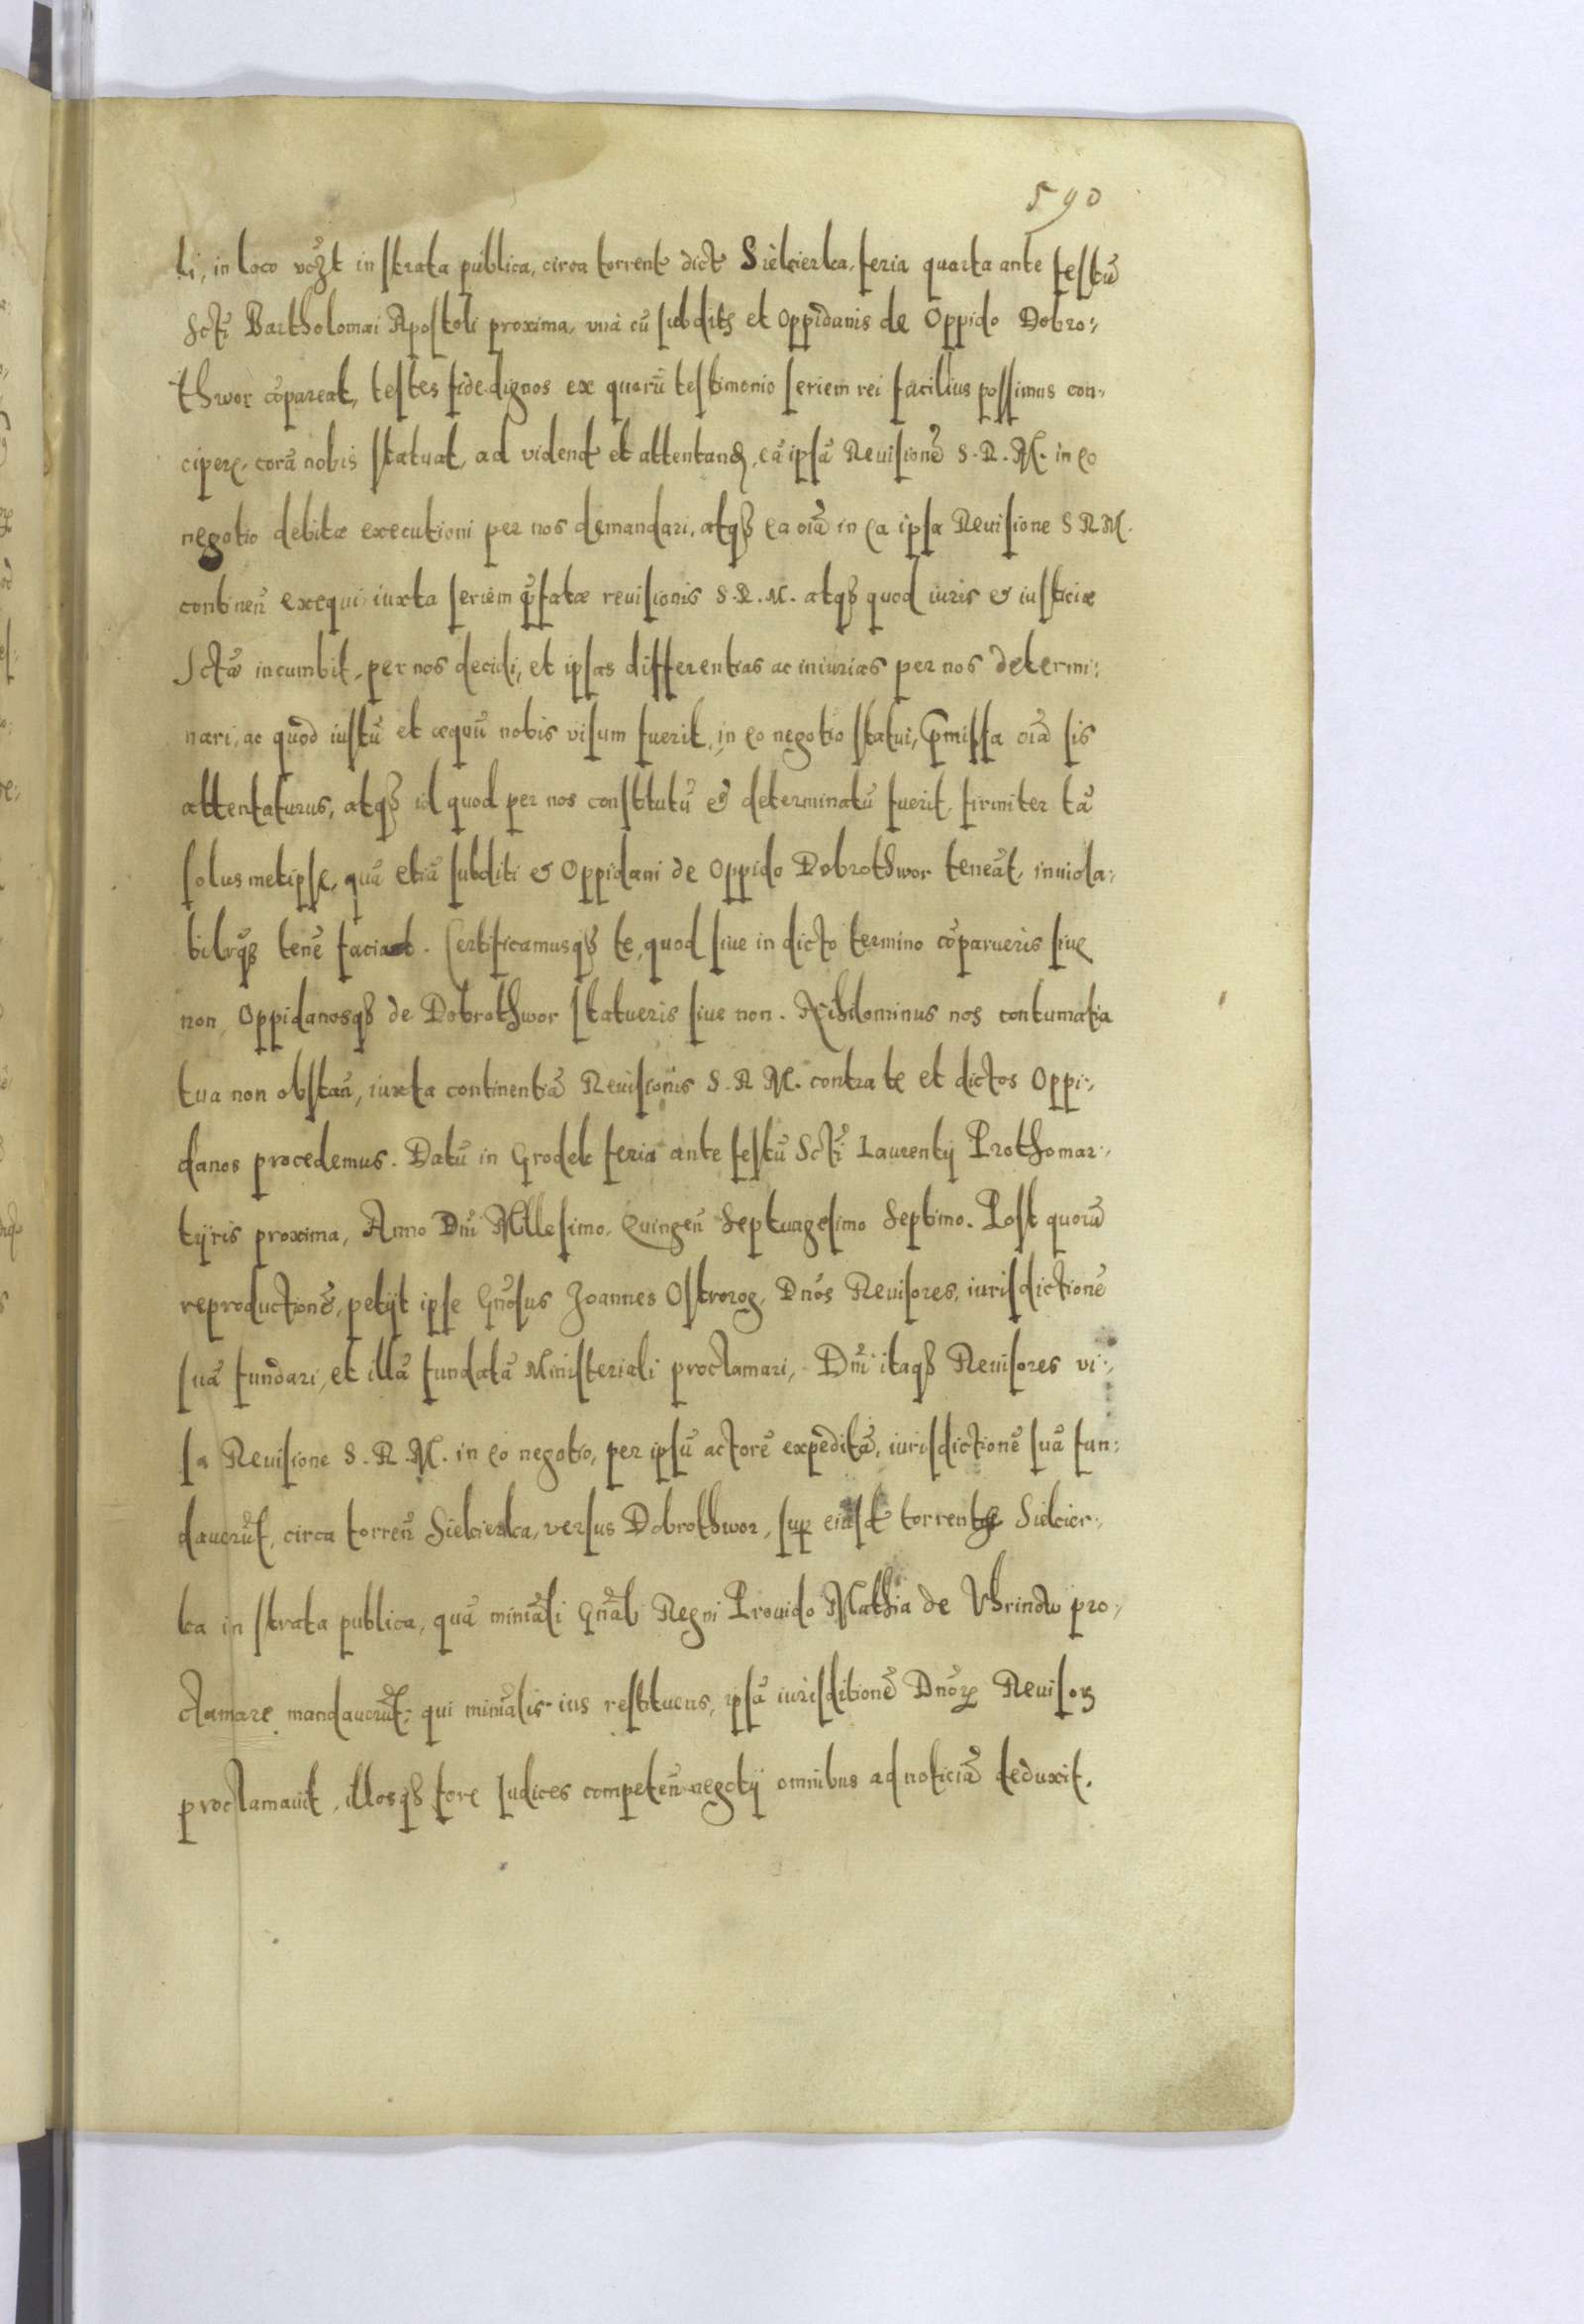 590
li, in loco vczt in strata publica, circa torrent dict Sielcierka, feria quarta ante festũ
Scti Bartholomæi Apostoli proxima, vnà cũ subditis et Oppidanis de Oppido Dobro:,
thwor cõpareat, testes fidedignos ex quorũ testimonio seriem rei facilius possimus con:,
cipere, corã nobis statuat, ad vident et attentand, eã ipsã Reuisionẽ S. R. M. in eo
negotio debitæ executioni per nos demandari, atq₃ ea oĩa in ea ipsa Reuisione S R M.
continen̄ exequi iuxta seriem p̄fatæ reuisionis S. R. M. atq₃ quod iuris & iusticiæ
Sctæ incumbit, per nos decidi, et ipsas differentias ac iniurias per nos determi:,
nari, ac quod iustũ et æquũ nobis visum fuerit, in eo negotio statui, p̄missa oĩa sis
attentaturus, atq₃ id quod per nos constitutũ & determinatũ fuerit, firmiter tã
solus metipse, quã etiã subditi & Oppidani de Oppido Dobrothwor teneãt, inuiola:,
bilrq₃ tenẽ faciat. Certificamusq₃ te, quod siue in dicto termino cõparueris siue
non, Oppidanosq₃ de Dobrothwor statueris siue non. Nihilominus nos contumatia
tua non obstan̄, iuxta continentiã Reuisionis S. R M. contra te et dictos Oppi:,
danos procedemus. Datũ in Grodek feria ante festũ Scti Laurentij Prothomar:,
tyris proxima, Anno Dni Millesimo, Quingen̄ Septuagesimo Septimo. Post quorũ
reproductionẽ, petijt ipse Gnosus Joannes Ostrorog, Dnos Reuisores, iurisdictionẽ
suã fundari, et illã fundatã Ministeriali proclamari, Dni itaq₃ Reuisores vi:,
sa Reuisione S. R. M. in eo negotio, per ipsũ actorẽ expeditã, iurisdictionẽ suã fun:,
dauerũt, circa torren̄ Sielcierka, versus Dobrothwor, sup eiusd torrente Sielcier:,
ka in strata publica, quã miniãli Gnãli Regni Prouido Mathia de Vhrinow pro:,
clamare mandauerũt: qui miniãlis ius restituens, ipsã iurisditionẽ Dnoꝝ Reuisoꝝ
proclamauit, illosq₃ fore Iudices competen̄ negotij omnibus ad noticiã deduxit.